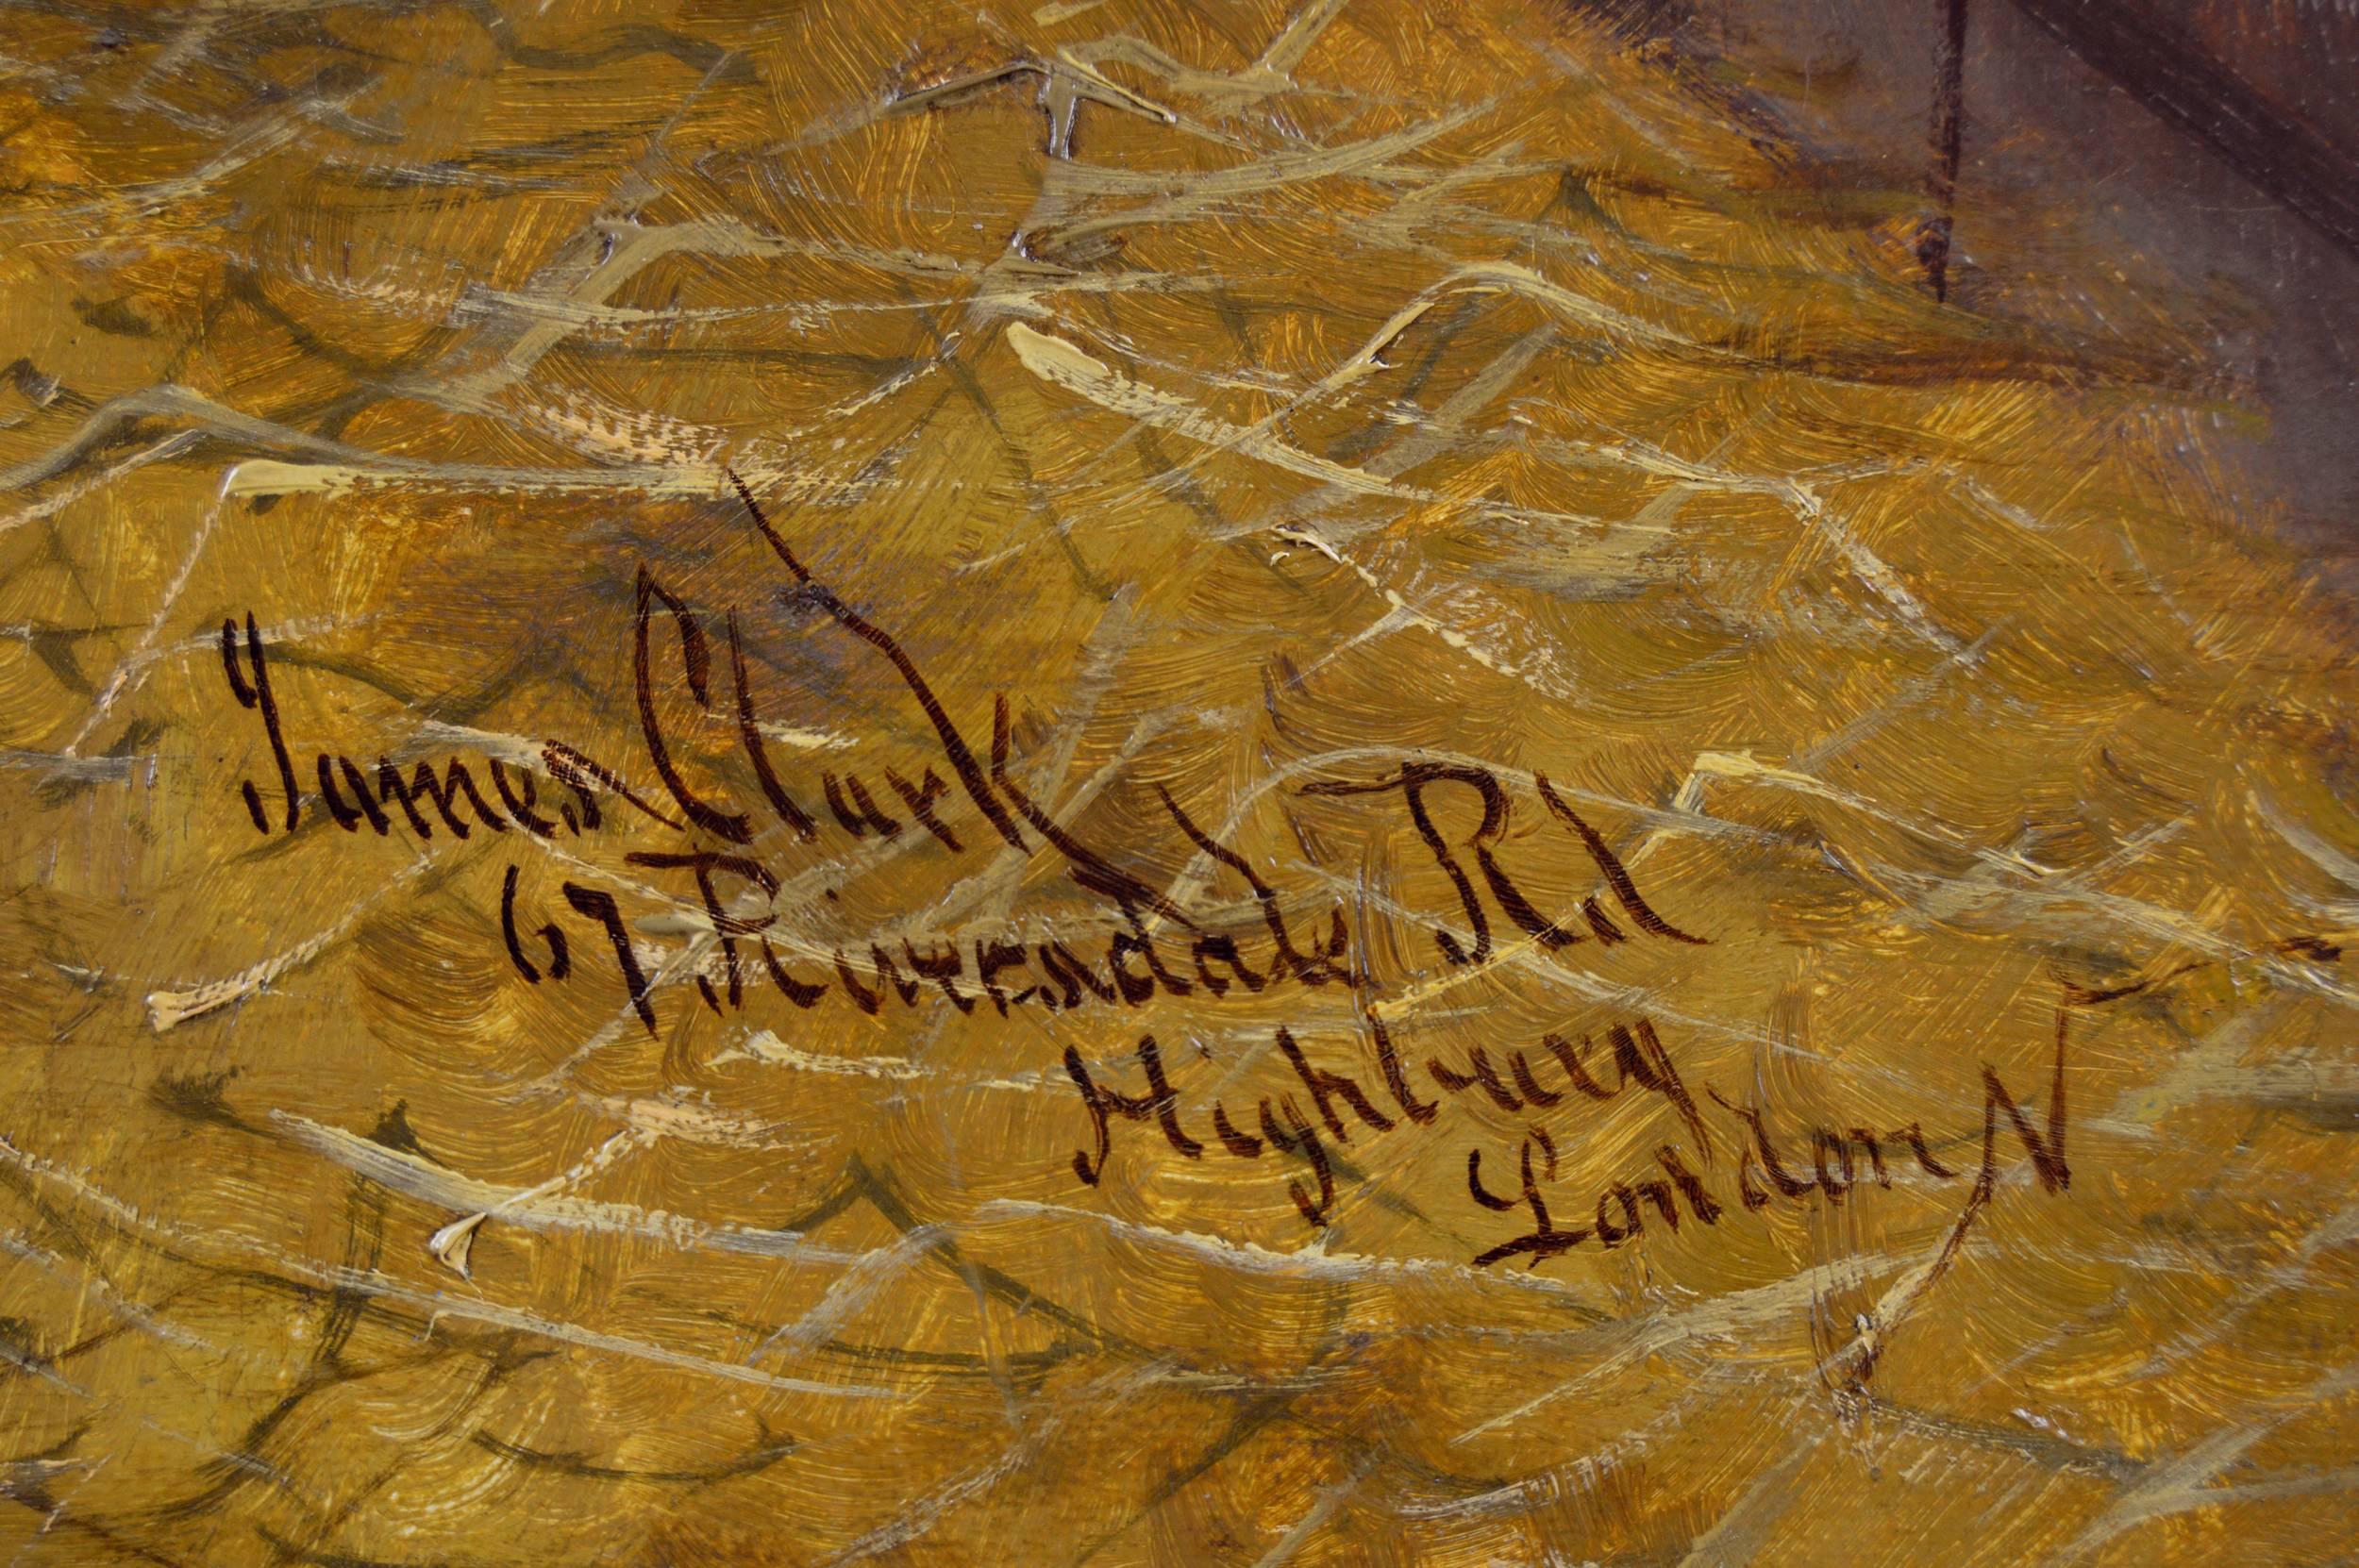 James Clark
67 Riversdale Rd
Highbury
London N